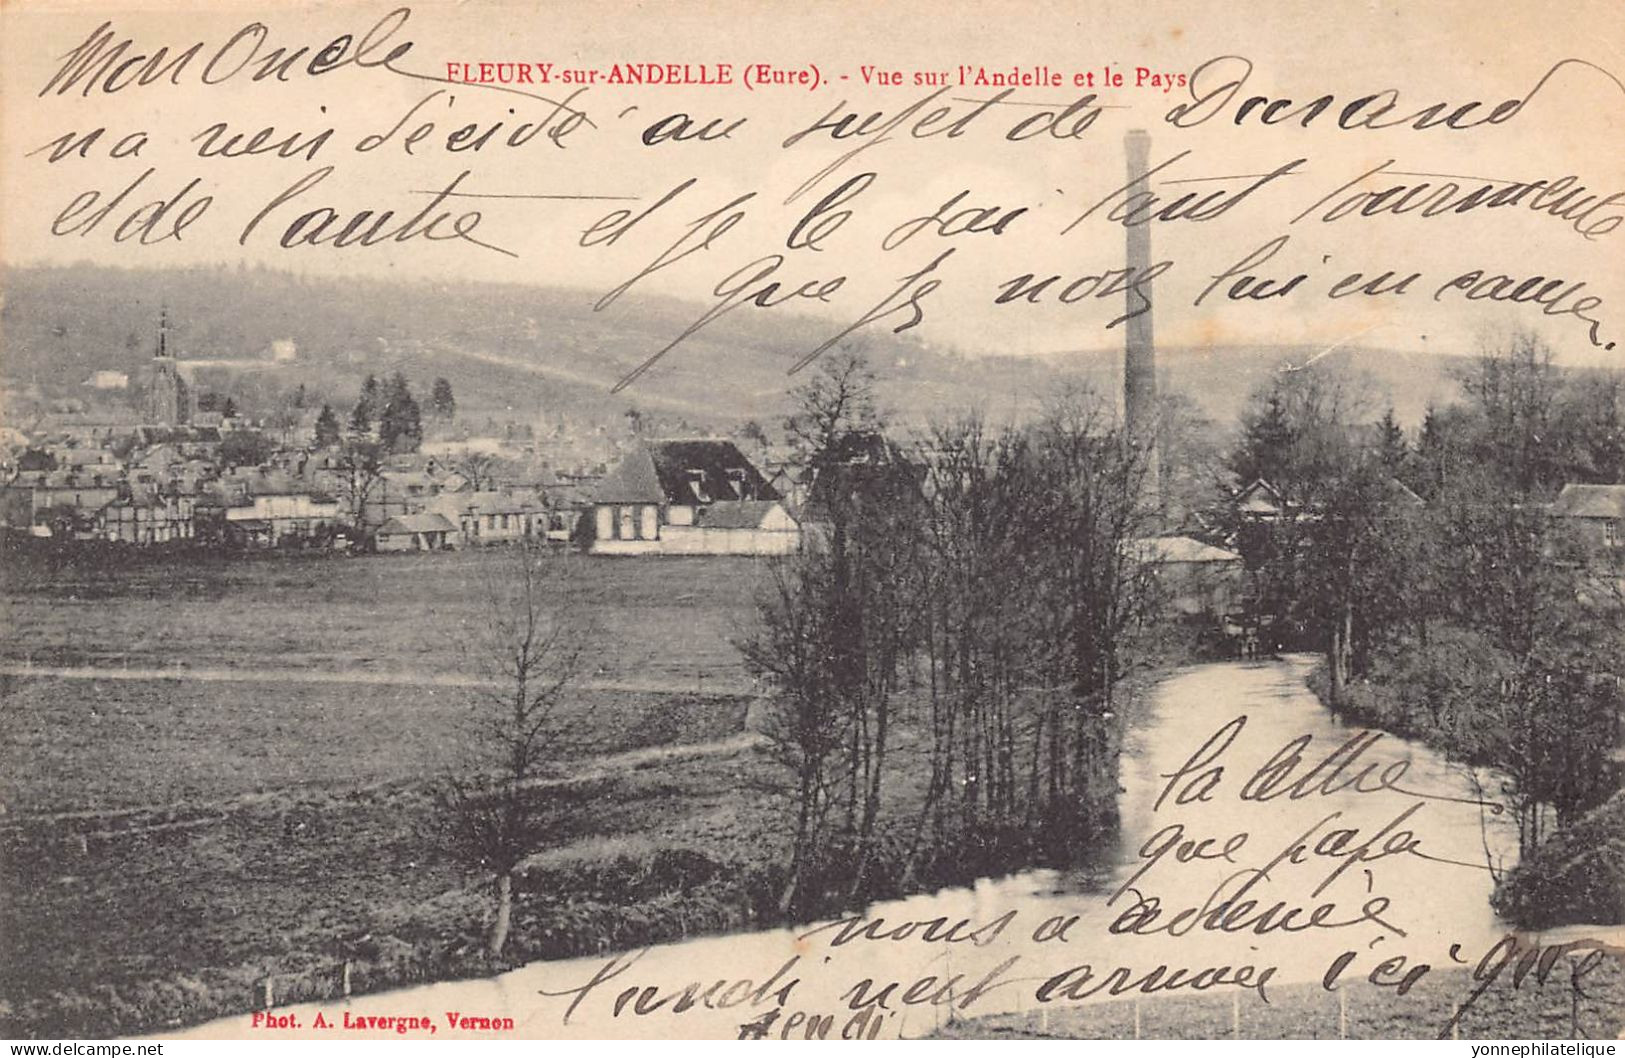 Mon Oncle
FLEURY-sur-ANDELLE (Eure). - Vue sur l'Andelle et le Pays
n a rien décidé au sujet de Durand
et de l'autre et je le sai tant tourmente
que je nose lui en causer.
la lettre
que papa
nous a adressée
lundi n'est arrivée ici que
jeudi
Phot. A. Lavergne, Vernon
delcampe.net
yonnephilatelique